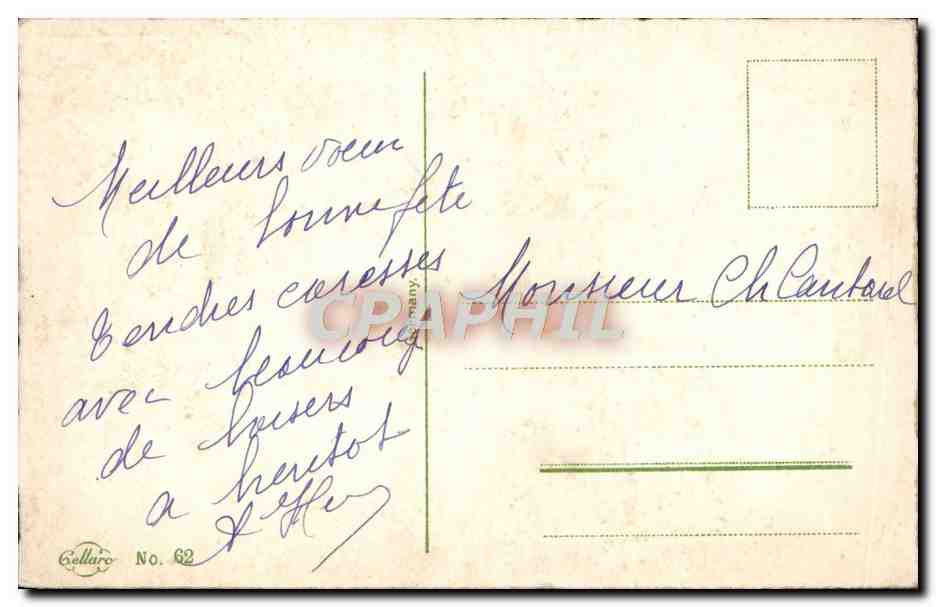 Meilleurs voeux
de bonne fete
Tendres caresses
avec beaucoup
de baisers
a bientot
Monsieur Ch
Germany.
CPAPHIL
Cellaro No. 62